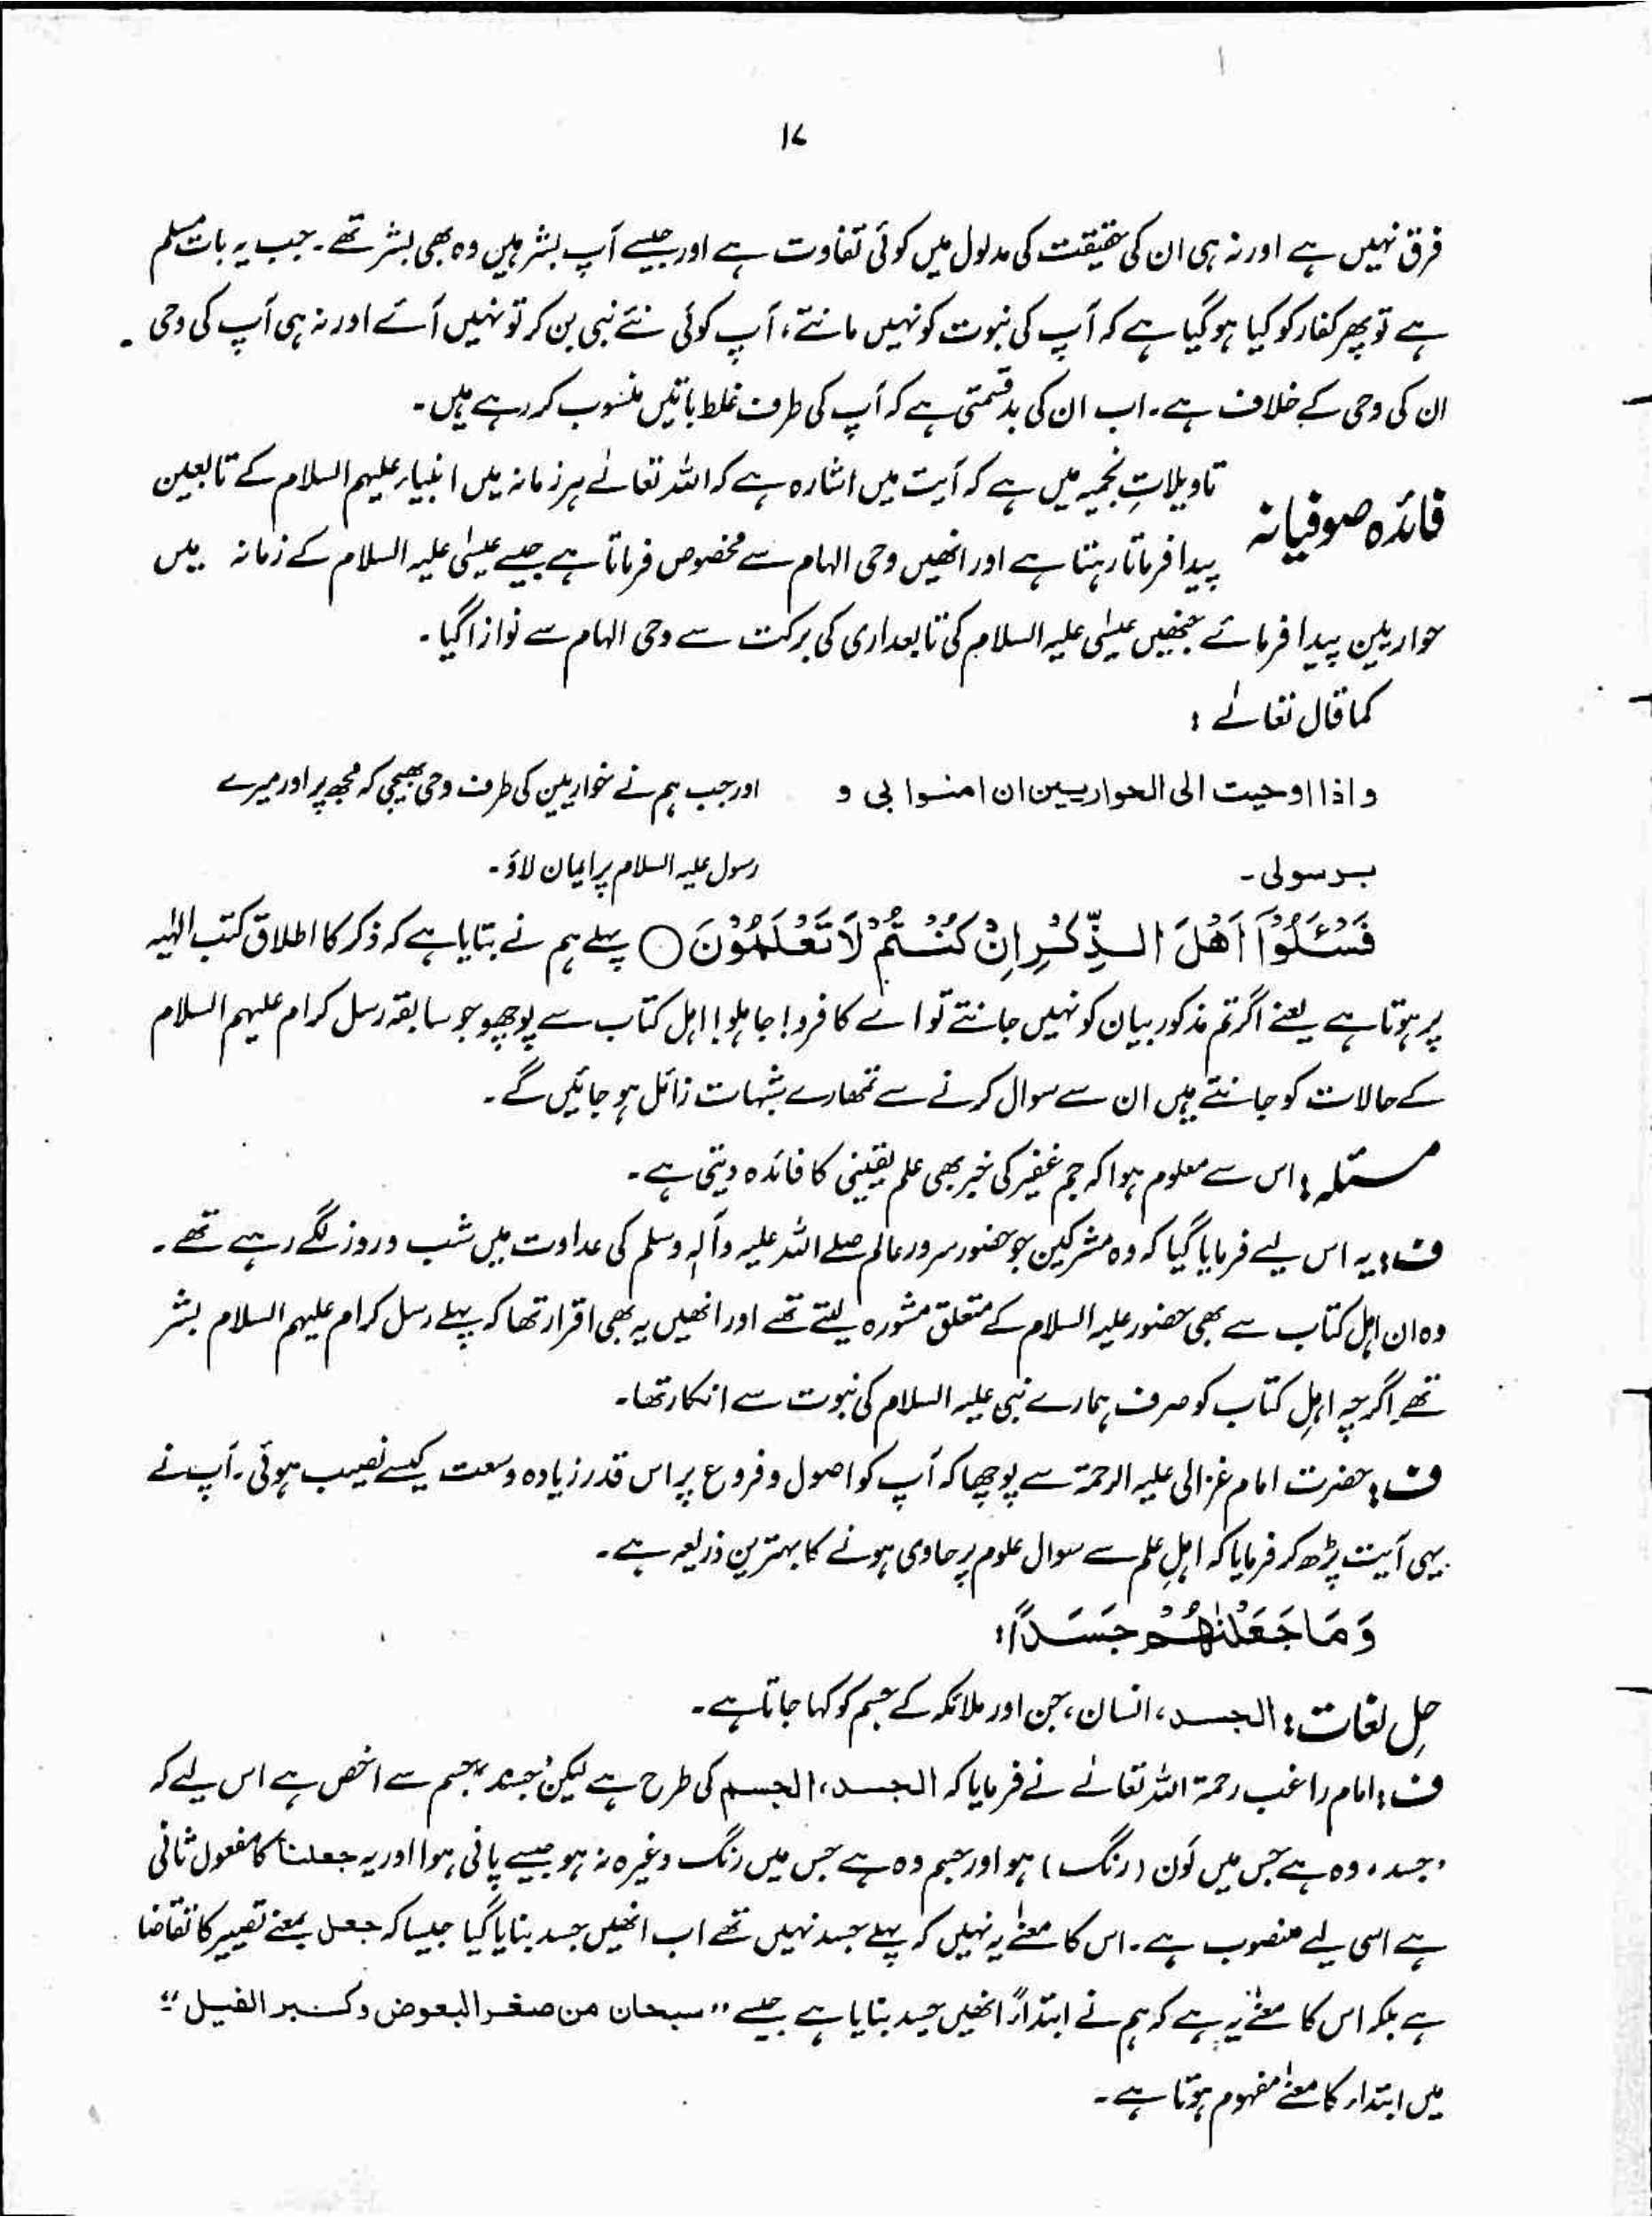 ۱۷
فرق نہیں ہے اور نہ ہی ان کی حقیقت کی مدلول میں کوئی تفاوت ہے اور جیسے آپ بشر ہیں وہ بھی بشر تھے۔ جب یہ بات مسلم
ہے تو پھر کفار کو کیا ہو گیا ہے کہ آپ کی نبوت کو نہیں مانتے، آپ کوئی نئے نبی بن کر تو نہیں آئے اور نہ ہی آپ کی وحی
ان کی وحی کے خلاف ہے۔ اب ان کی بدقسمتی ہے کہ آپ کی طرف غلط باتیں منسوب کر رہے ہیں۔
فائدہ صوفیانہ
تاویلاتِ نجمیہ میں ہے کہ آیت میں اشارہ ہے کہ اللہ تعالٰے ہر زمانہ میں انبیاء علیہم السلام کے تابعین
پیدا فرماتا رہتا ہے اور انھیں وحی الہام سے مخصوص فرماتا ہے جیسے عیسٰی علیہ السلام کے زمانہ میں
حواریین پیدا فرمائے جنھیں عیسٰی علیہ السلام کی تابعداری کی برکت سے وحی الہام سے نوازا گیا۔
کما قال تعالٰے :
و اذا اوحیت الی الحواریین ان امنوا بی و
اور جب ہم نے حواریین کی طرف وحی بھیجی کہ مجھ پر اور میرے
برسولی۔
رسول علیہ السلام پر ایمان لاؤ۔
فَسْـَٔلُوْٓا اَھْلَ الذِّکْرِ اِنْ کُنْتُمْ لَا تَعْلَمُوْنَ ○ پہلے ہم نے بتایا ہے کہ ذکر کا اطلاق کتب الٰہیہ
پر ہوتا ہے یعنے اگر تم مذکور بیان کو نہیں جانتے تو اے کافرو! جاہلو! اہل کتاب سے پوچھو جو سابقہ رسل کرام علیہم السلام
کے حالات کو جانتے ہیں ان سے سوال کرنے سے تمھارے شبہات زائل ہو جائیں گے۔
مسئلہ : اس سے معلوم ہوا کہ جم غفیر کی خبر بھی علم یقینی کا فائدہ دیتی ہے۔
ف : یہ اس لیے فرمایا گیا کہ وہ مشرکین جو حضور سرور عالم صلے اللہ علیہ وآلہٖ وسلم کی عداوت میں شب و روز لگے رہے تھے۔
وہ ان اہل کتاب سے بھی حضور علیہ السلام کے متعلق مشورہ لیتے تھے اور انھیں یہ بھی اقرار تھا کہ پہلے رسل کرام علیہم السلام بشر
تھے اگرچہ اہلِ کتاب کو صرف ہمارے نبی علیہ السلام کی نبوت سے انکار تھا۔
ف : حضرت امام غزالی علیہ الرحمۃ سے پوچھا کہ آپ کو اصول و فروع پر اس قدر زیادہ وسعت کیسے نصیب ہوئی۔ آپ نے
یہی آیت پڑھ کر فرمایا کہ اہلِ علم سے سوال علوم پر حاوی ہونے کا بہترین ذریعہ ہے۔
وَمَا جَعَلْنٰھُمْ جَسَدًا :
حل لغات : الجسد، انسان، جن اور ملائکہ کے جسم کو کہا جاتا ہے۔
ف : امام راغب رحمۃ اللہ تعالٰے نے فرمایا کہ الجسد، الجسم کی طرح ہے لیکن "جسد" جسم سے اخص ہے اس لیے کہ
"جسد" وہ ہے جس میں لَون (رنگ) ہو اور جسم وہ ہے جس میں رنگ وغیرہ نہ ہو جیسے پانی ہوا اور یہ جعلنا کا مفعول ثانی
ہے اسی لیے منصوب ہے۔ اس کا معنٰے یہ نہیں کہ پہلے جسد نہیں تھے اب انھیں جسد بنایا گیا جیسا کہ جعل بمعنے تصییر کا تقاضا
ہے بلکہ اس کا معنٰے یہ ہے کہ ہم نے ابتداءً انھیں جسد بنایا ہے جیسے "سبحان من صغر البعوض و کبر الفیل"
میں ابتداء کا معنٰے مفہوم ہوتا ہے۔